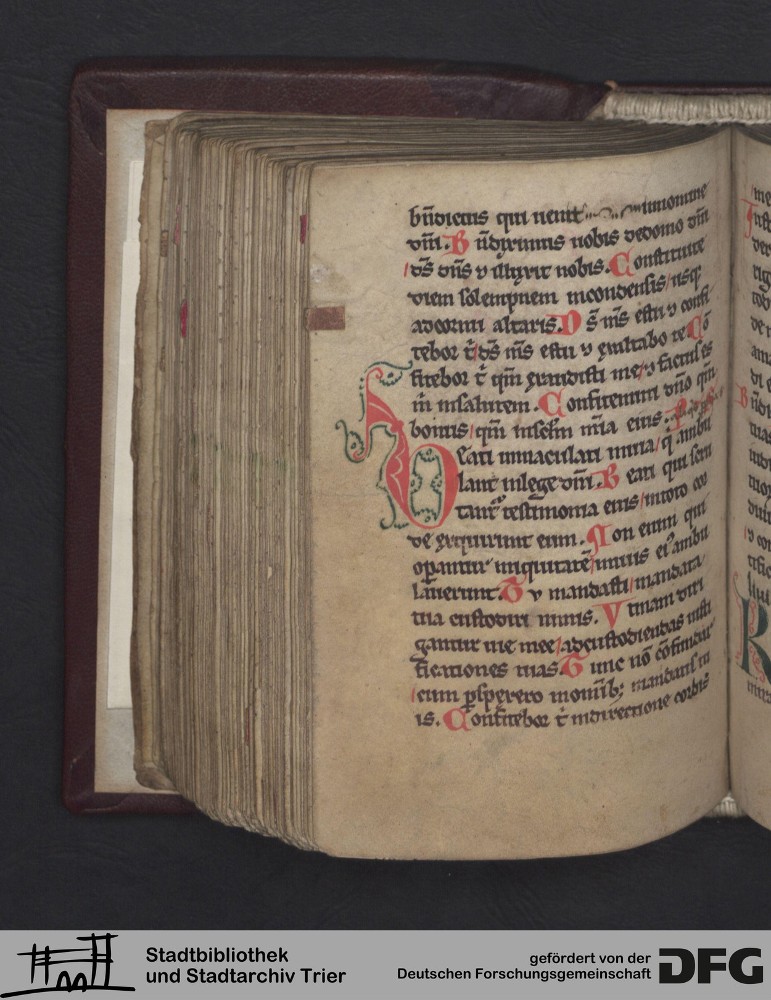 bn̄dictus qui uenit in nomine
dn̄i. B n̄diximus uobis dedomo dn̄i
ds̄ dn̄s ⁊ illuxit nobis. Constituite
diem solempnem incondensis usq
adcornu altaris. D s̄ ms̄ es tu ⁊ confi
tebor t̄ ds̄ ms̄ es tu ⁊ exaltabo te. Cō
fitebor t̄ qm̄ exaudisti me ⁊ factus es
m̄ insalutem. Confitemini dn̄o qm̄
bonus qm̄ insecl̄m mīa eius.
Beati inmaculati inuia q̄ ambu
lant inlege dn̄i. Beati qui scru
tant᷑ testimonia eius intoto cor
de exquirunt eum. Non enim qui
operantur iniquitatē inuiis ei᷒ ambu
lauerunt. Tu mandasti mandata
tua custodiri nimis. Vtinam diri
gantur uie mee adcustodiendas iusti
ficationes tuas. Tunc nō cōfundar
cum ꝑspexero inomīb; mandatis tu
is. Confitebor t̄ indirectione cordis
Stadtbibliothek
und Stadtarchiv Trier
gefördert von der
Deutschen Forschungsgemeinschaft
DFG